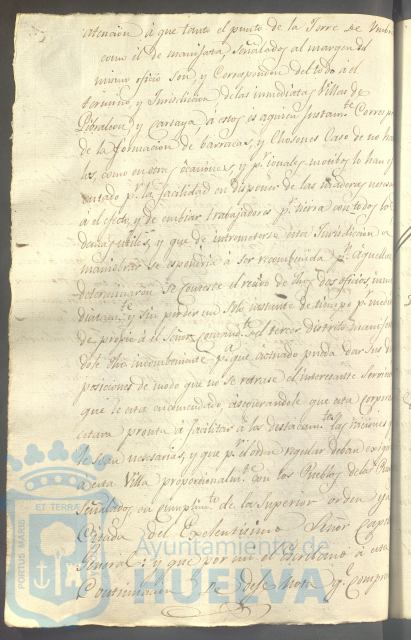 atencion á que tanto el punto de la Torre de Umbria
como il de manifata señalados al margen del
mismo oficio Son, y Corresponden del todo á el
termino y Jurisdiccion de las inmediatas Villas de
Gibraleon, y Cartaya á estos es a quien Justam.te Corresp
de la formacion de barracas, y Chosones Caso de no ha
las, como en otras ocasiones, y p.r iguales motivos lo han
p.r la facilidad en disponer de las maderas neces
á el efecto, y de embiar trabajadores p.r tierra con todos lo
demas utiles, y que de intrometerse esta Jurisdiccion a
maniobrar se espondria á ser reconbenida p.r aquellas
determinaron Se conteste el recivo de dhos dos oficios inme
diatam.te y Sin perder un Solo instante de tiempo p.r medio
de propio á el Señor Comand.te del tercer distrito manifestan
dole dho incombeniente p.a que actuado pueda dar Sus dis
posiciones de modo que no se retrase el interesante Servicio
que le esta encomendado, asegurandole que esta Corpora
estara pronta á facilitar á los destacam.tos las raciones q
le sean nesesarias, y que p.r el orden regular deban exigir
a esta Villa proporcionalm.te con los Pueblos de la
señalados, en cumplim.to de la Superior orden ya
Citada del Exelentisimo Señor Capit
General: y que por mi el Escribano á esta
Continuacion Se deje Nota q.e compru
PORTUS MARIS ET TERRAE
Ayuntamiento de
HUELVA